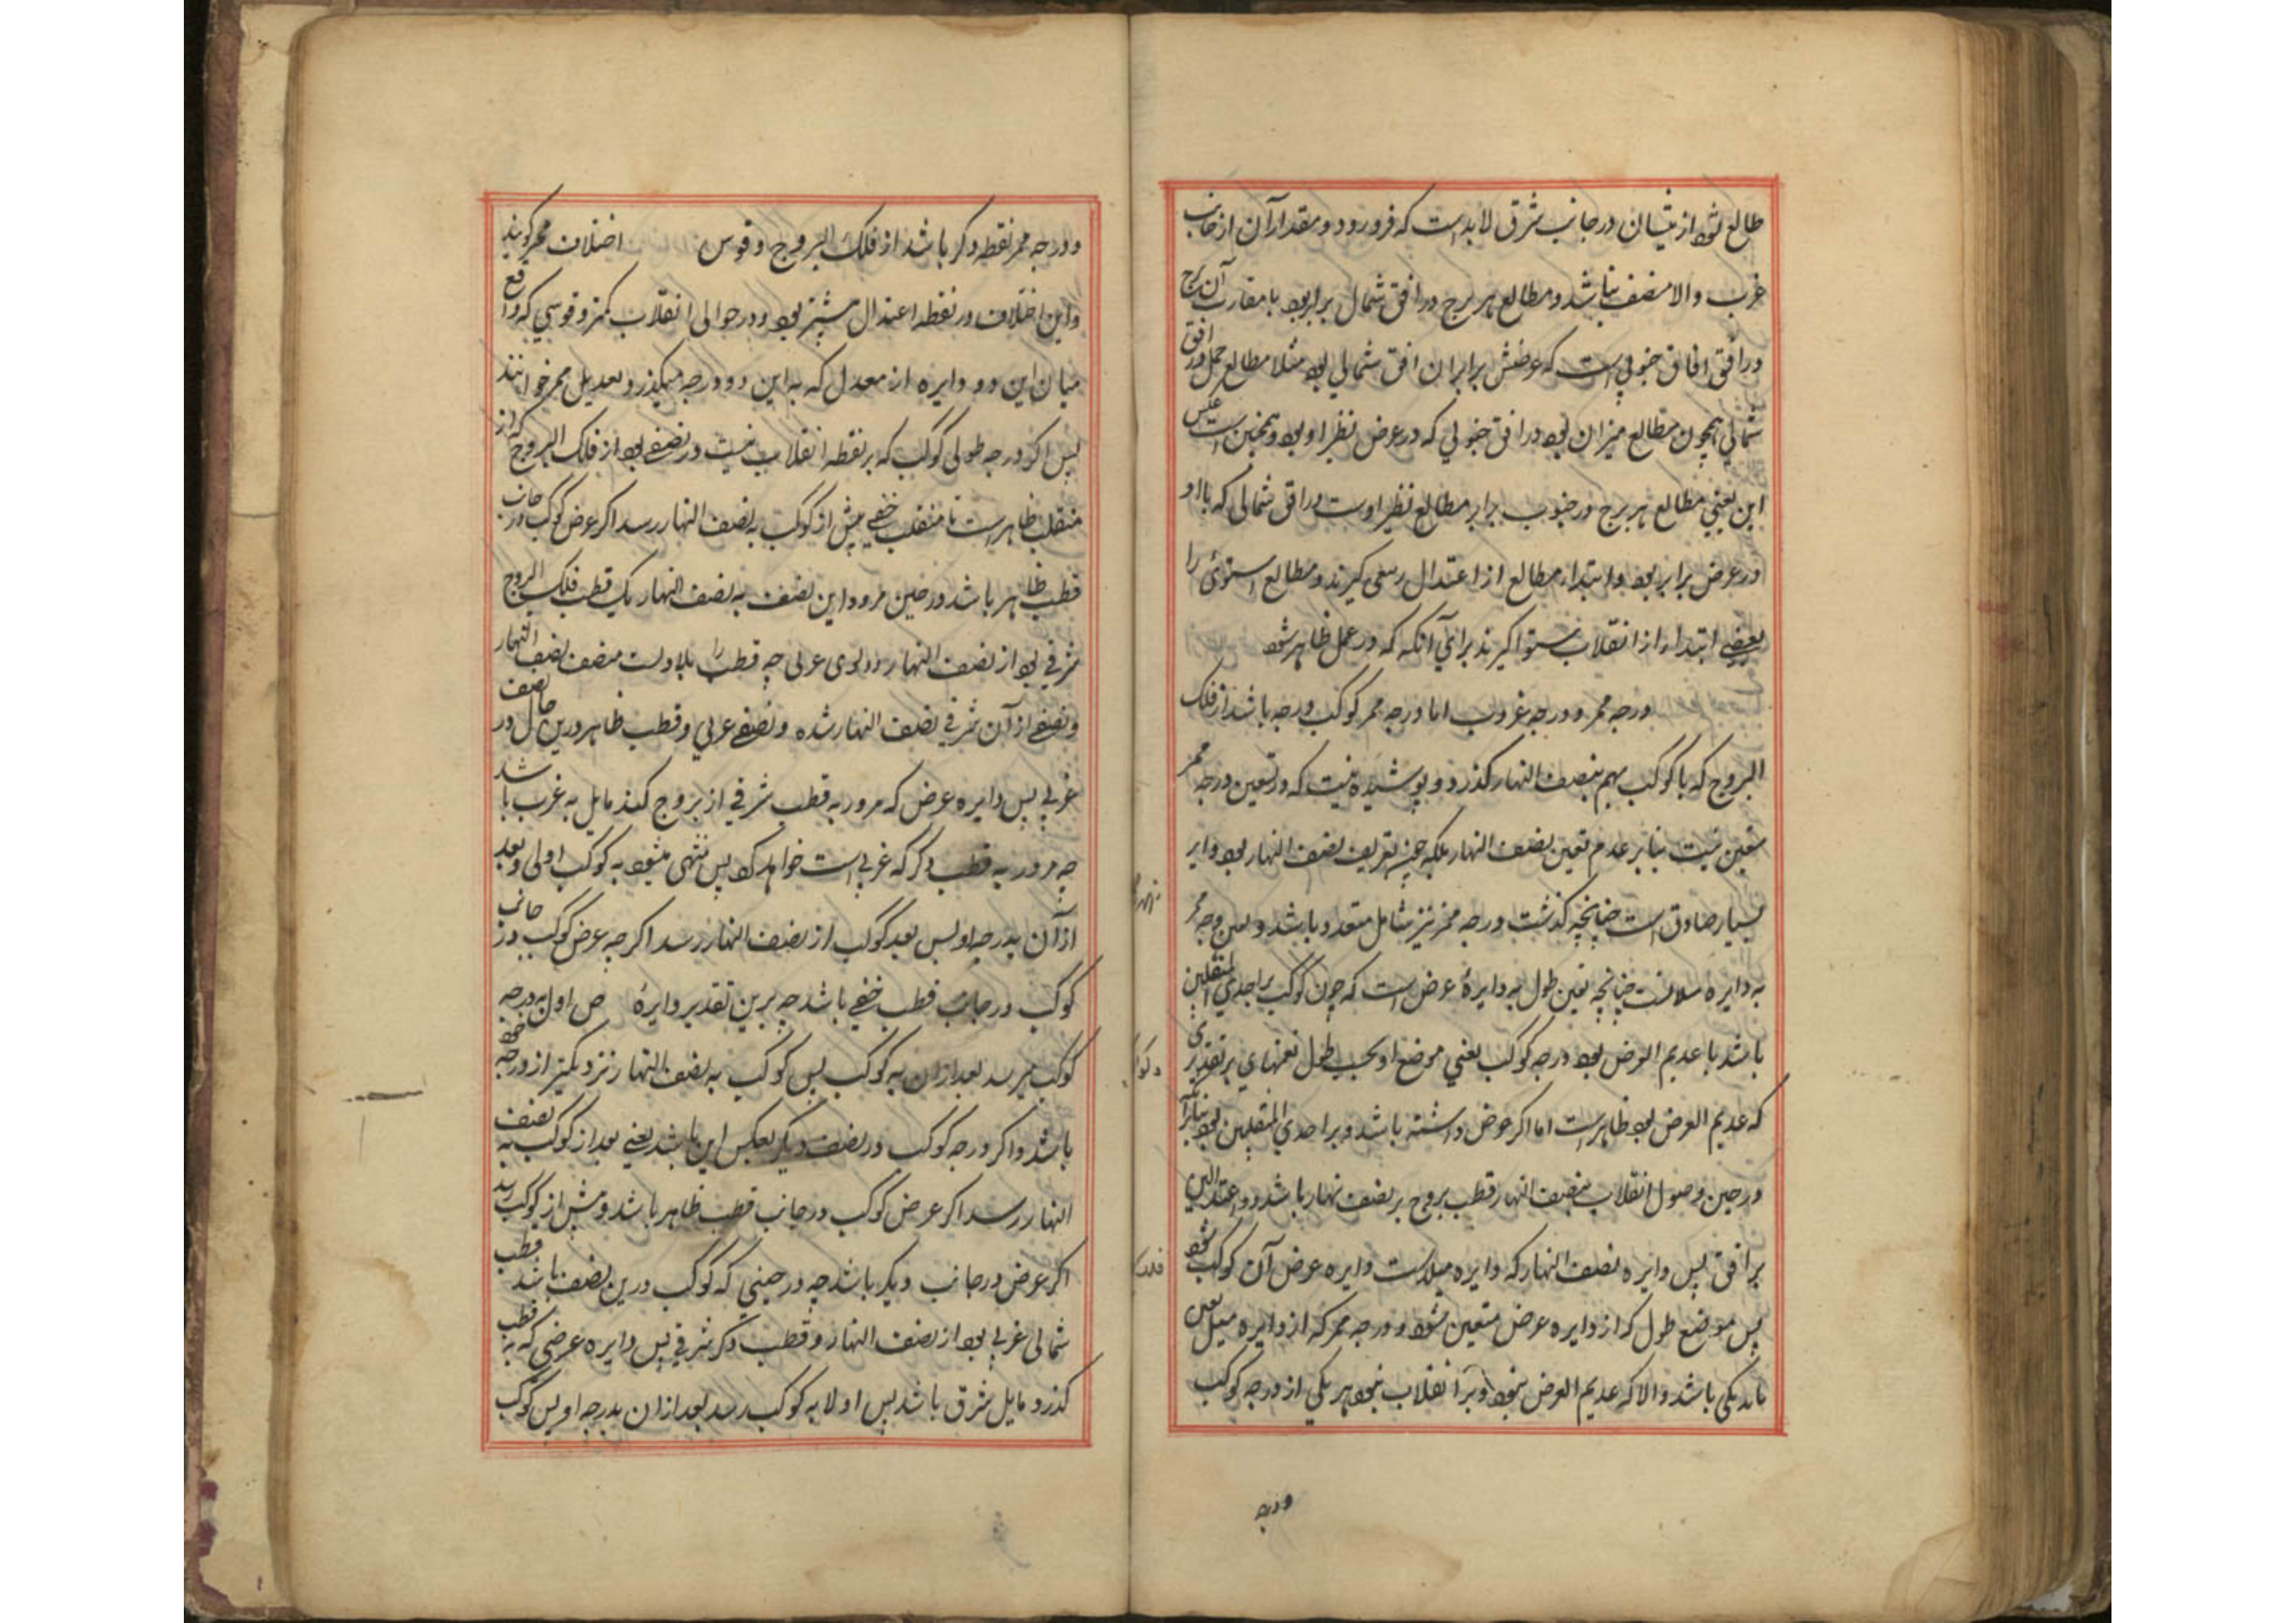 طالع شود از بتیان در جانب شرق لابد است که فرو رود و مقدار آن از جانب
غرب والا منصف نباشد و مطالع هر برج در افق شمال برابر بود با مقارب آن برج
در افقی افاق جنوبی است که عرضش برابر آن افق شمالی بود مثلا مطالع حمل در افق
شمالی همچون مطالع میزان بود در افق جنوبی که در عرض نظیر او بود و همچنین است عکس
این یعنی مطالع هر برج در جنوب برابر مطالع نظیر اوست در افق شمالی که با او
در عرض برابر بود و ابتدا مطالع از اعتدال ربیعی گیرند و مطالع استوائی را
بعضی ابتدا از انقلاب شتوا گیرند برای آنکه که در عمل ظاهر شود
درجه ممر و درجه غروب اما درجه ممر کوکب درجه باشد از فلک
البروج که با کوکب بهم بنصف النهار گذرد و پوشیده نیست که در تعین درجه ممر
متعین نیت بنا بر عدم تعین نصف النهار بلکه تعریف نصف النهار بود وایر
بسیار صادق است چنانچه گذشت درجه ممر نیز شامل متعدد باشد و درجه ممر
به دایره میلانست چنانچه تعین طول به دایرهٔ عرض است که چون کوکب براحدی المنقلبین
باشد با عدیم العرض بود درجه کوکب یعنی موضع او بحسب طول بر تقدیری
که عدیم العرض بود ظاهر است اما اگر عرض داشته باشد و بر احدی المنقلبین بود بنابرآنکه
در حین وصول انقلاب بنصف النهار قطب بروج بر نصف نهار باشد و اعتدالین
بر افق پس دایره نصف النهار که دایره میلاست دایره عرض آن کوکب شود
پس موضع طول که از دایره عرض متعین شود و درجه ممر که از دایره میل تعین
یابد یکی باشد والا که عدیم العرض نبود و بر انقلاب نبود هر یکی از درجه کوکب
درجه
و درجه ممر نقطه دگر باشد از فلک البروج و قوس اختلاف ممر گویند
و این اختلاف در نقطه اعتدال بیشتر بود و در حوالی انقلاب کمتر و قوسی که واقع
میان این دو دایره از معدل که به این دو درجه میگذرد تعدیل ممر خوانند
پس اگر درجه طولی کوکب که بر نقطه انقلاب نیست در نصفی بود از فلک البروج که از
منقلب ظاهر است تا منقلب خفی پیش از کوکب به نصف النهار رسد اگر عرض کوکب در جانب
قطب ظاهر باشد در حین مرور این نصف به نصف النهار یک قطب فلک البروج
شرقی بود از نصف النهار و دیگری غربی چه قطب را بلاولت منصف نصف النهار
و نصفی از آن شرقی نصف النهار شده و نصفی غربی و قطب ظاهر درین حال در نصف
غربی پس دایره عرض که مرور به قطب شرقی از بروج کند مایل به غرب باشد
چه مرور به قطب دگر که غربی است خواهد کرد پس منتهی میشود به کوکب اولی و بعد
از آن بدرجه او پس بعد کوکب از نصف النهار رسد اگر چه عرض کوکب در جانب
کوکب در جانب قطب خفی باشد چه برین تقدیر دایرهٔ ض اول به درجه
کوکب میرسد بعد از ان به کوکب پس کوکب به نصف النهار نزدیکتر از درجه خود
باشد و اگر درجه کوکب در نصف دیگر بعکس این باشد یعنی بعد از کوکب به نصف
النهار رسد اگر عرض کوکب در جانب قطب ظاهر باشد و پیش از کوکب رسد
اگر عرض در جانب دیگر باشد چه در حینی که کوکب درین نصف باشد قطب
شمالی غربی بود از نصف النهار و قطب دگر شرقی پس دایره عرضی که به قطب
گذرد مایل شرق باشد پس اولا به کوکب رسد بعد از ان بدرجه او پس کوکب